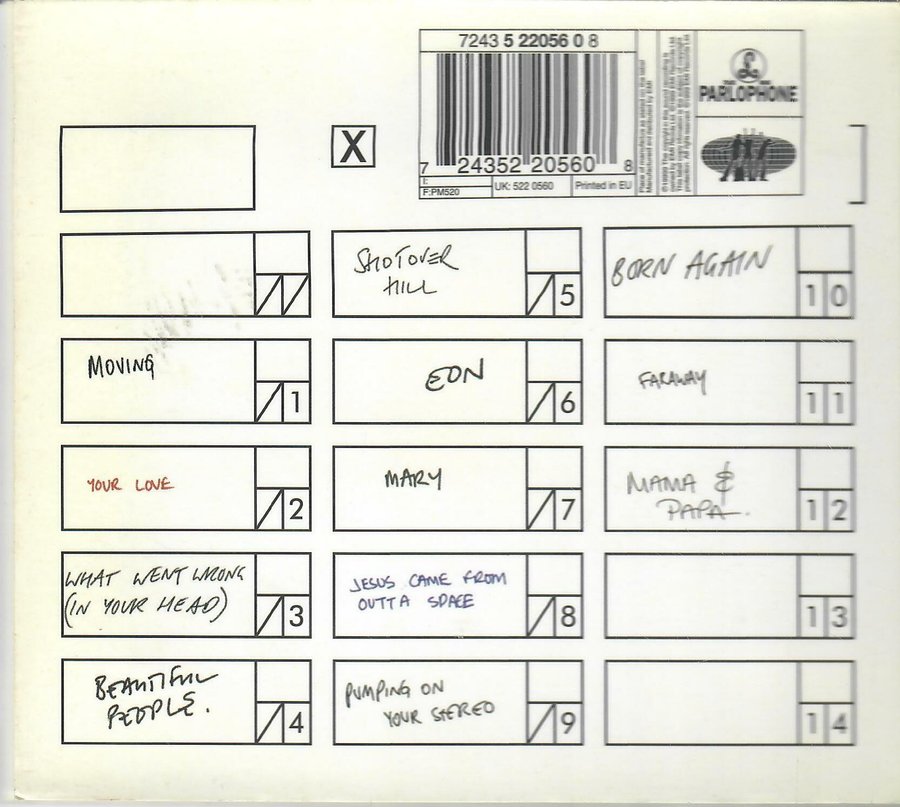 7243 5 22056 0 8
7 24352 20560 8
I:
F:PM520
UK: 522 0560
Printed in EU
Place of manufacture as stated on the label
Manufactured and distributed by EMI
PARLOPHONE
X
SHOTOVER
HILL
5
BORN AGAIN
10
MOVING
1
EON
6
FARAWAY
11
YOUR LOVE
2
MARY
7
MAMA &
PAPA.
12
WHAT WENT WRONG
(IN YOUR HEAD)
3
JESUS CAME FROM
OUTTA SPACE
8
13
BEAUTIFUL
PEOPLE.
4
PUMPING ON
YOUR STEREO
9
14